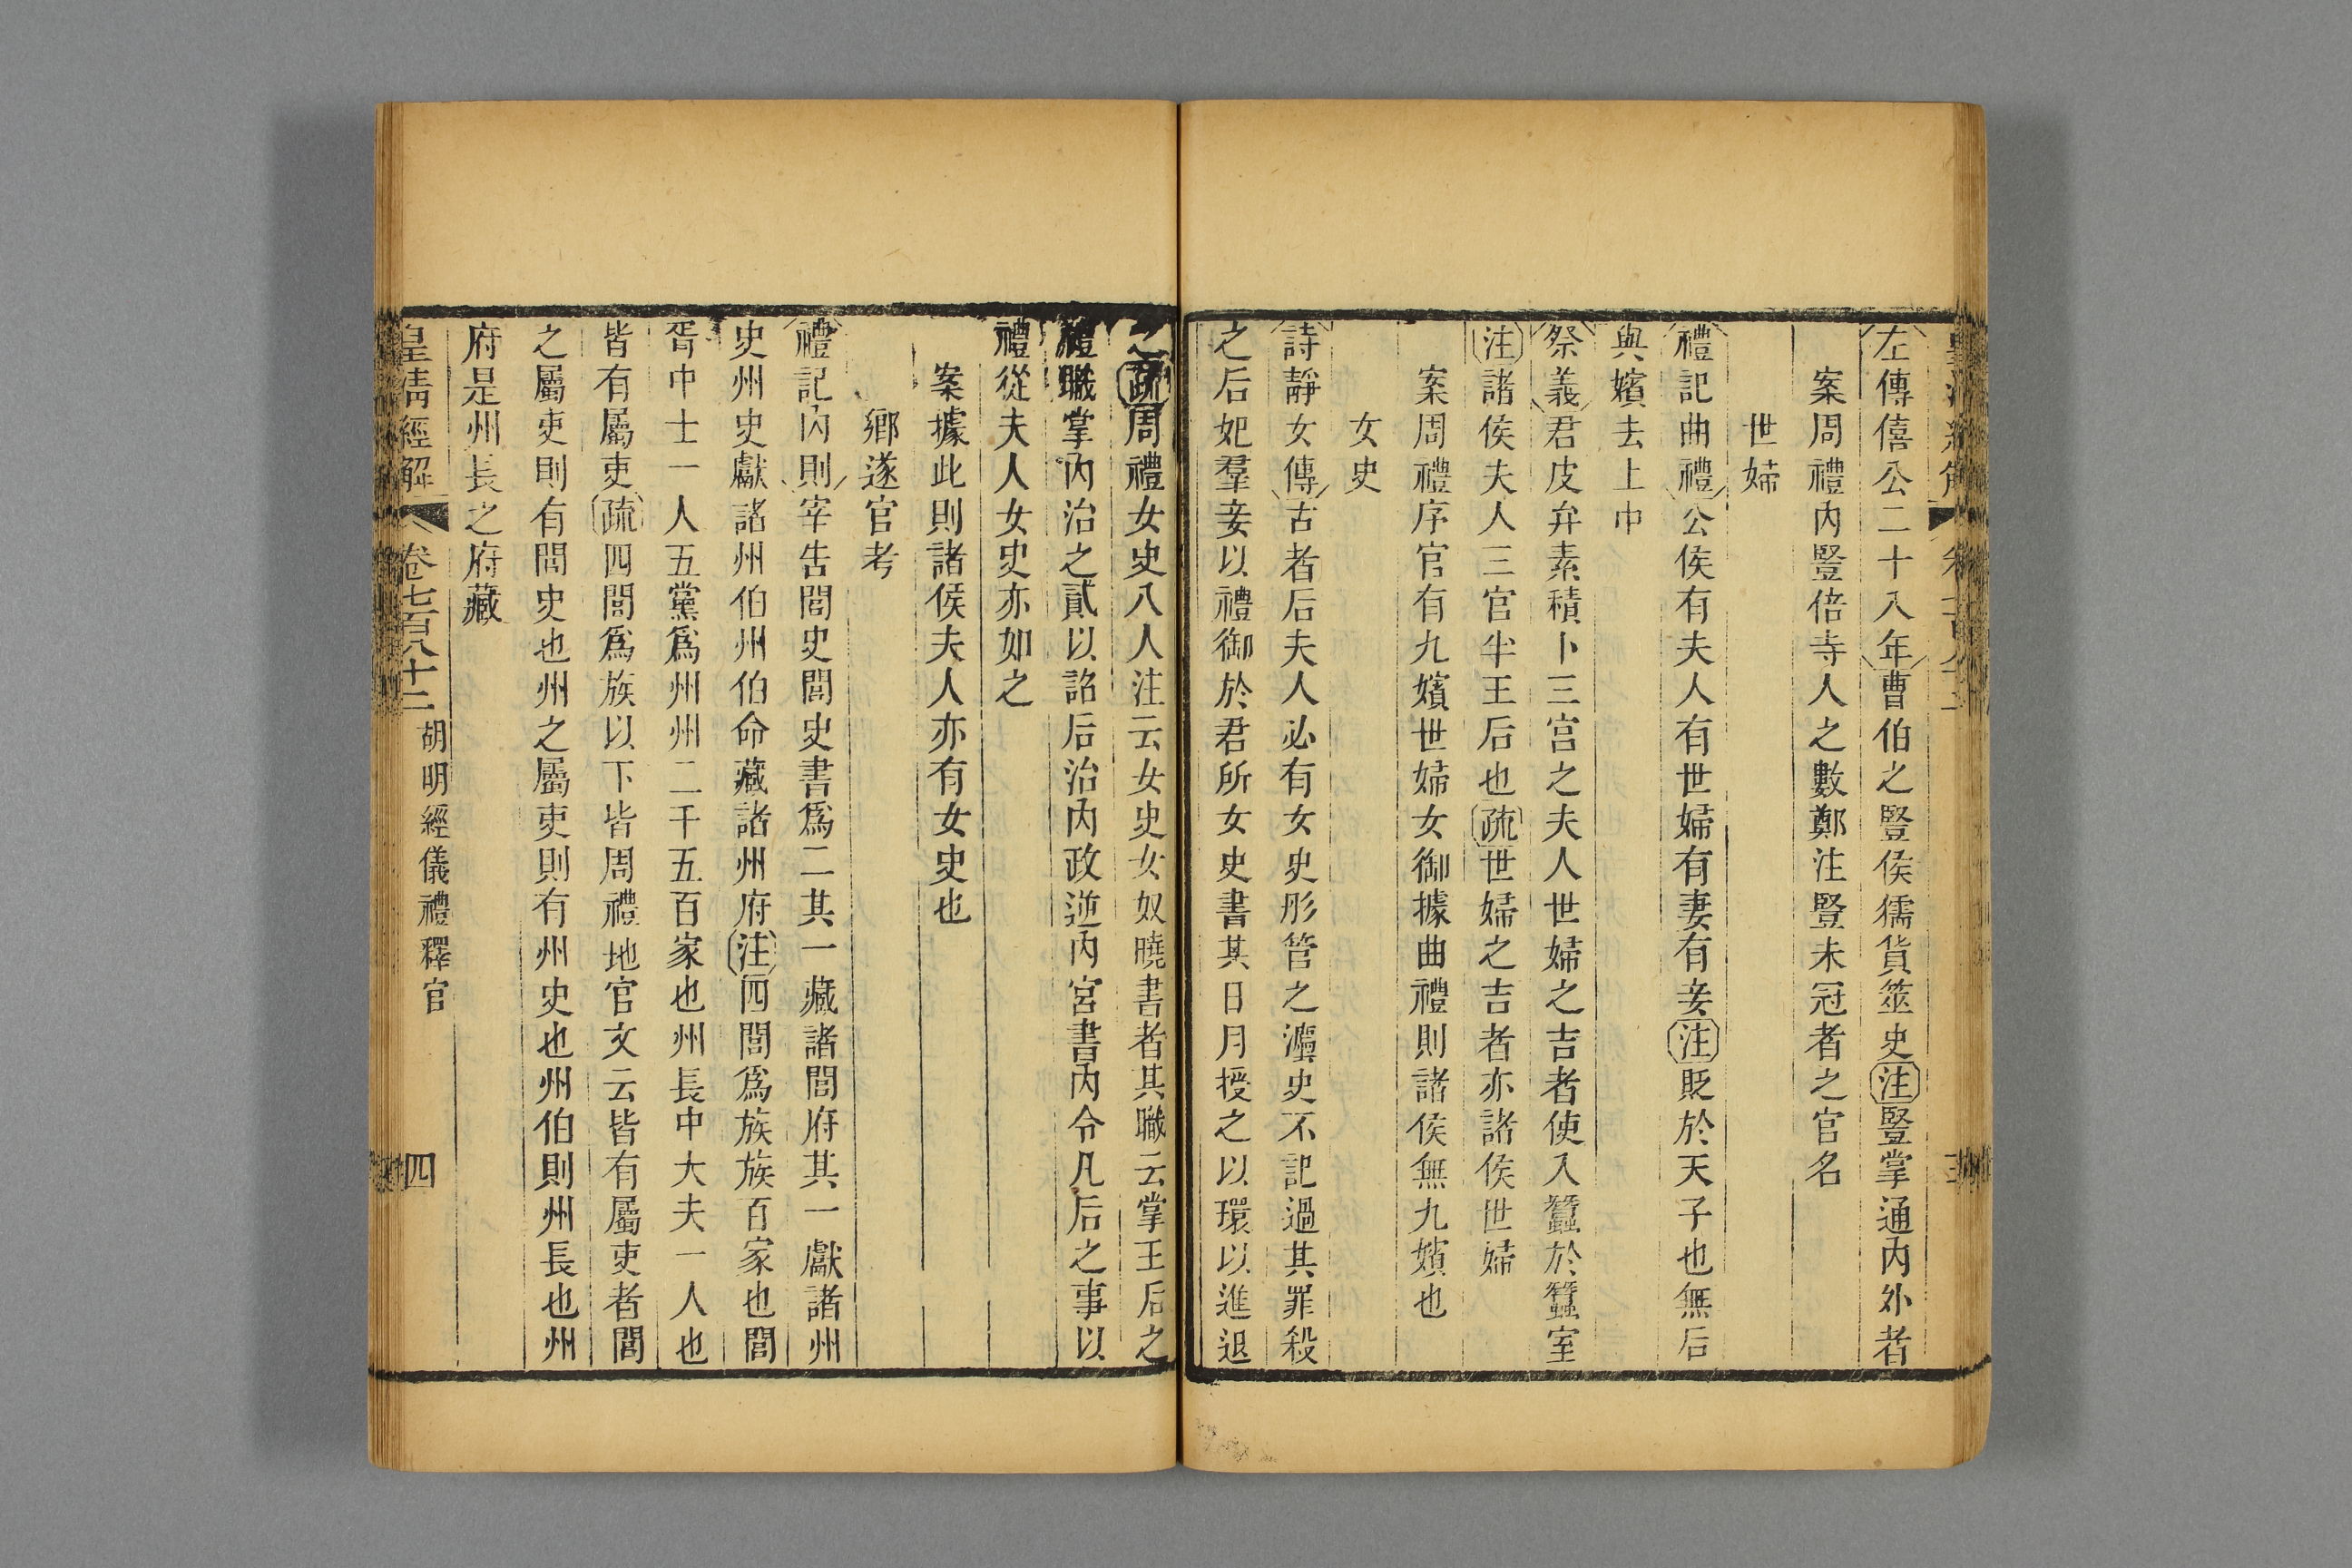 左傳僖公二十八年曹伯之豎侯獳貨筮史注豎掌通內外者
案周禮內豎倍寺人之數鄭注豎未冠者之官名
世婦
禮記曲禮公侯有夫人有世婦有妻有妾注貶於天子也無后
與嬪去上中
祭義君皮弁素積卜三宮之夫人世婦之吉者使入蠶於蠶室
注諸侯夫人三宮半王后也疏世婦之吉者亦諸侯世婦
案周禮序官有九嬪世婦女御據曲禮則諸侯無九嬪也
女史
詩靜女傳古者后夫人必有女史彤管之灋史不記過其罪殺
之后妃羣妾以禮御於君所女史書其日月授之以環以進退
之疏周禮女史八人注云女史女奴曉書者其職云掌王后之
禮職掌內治之貳以詔后治內政逆內宮書內令凡后之事以
禮從夫人女史亦如之
案據此則諸侯夫人亦有女史也
鄉遂官考
禮記內則宰告閭史閭史書爲二其一藏諸閭府其一獻諸州
史州史獻諸州伯州伯命藏諸州府注四閭爲族族百家也閭
胥中士一人五黨爲州州二千五百家也州長中大夫一人也
皆有屬吏疏四閭爲族以下皆周禮地官文云皆有屬吏者閭
之屬吏則有閭史也州之屬吏則有州史也州伯則州長也州
府是州長之府藏
皇清經解 卷七百八十二 胡明經儀禮釋官 四